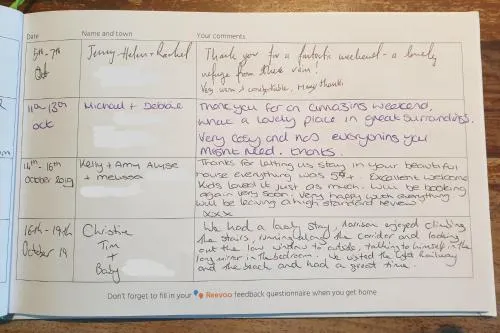 Date Name and town Your comments
5th - 7th Jenny - Helen + Rachel Thank you for a fantastic weekend - a lovely
Oct refuge from the rain!
Very warm & comfortable, Many thanks
11th - 13th Michael + Debbie Thank you for an amazing weekend,
oct what a lovely place in great surroundings.
Very cosy and has everything you
might need. Thanks.
14th - 16th Kelly + Amy Alyse Thanks for letting us stay in your beautiful
October 2019 + melissa house everything was 5*. Excellent welcome
Kids loved it just as much. Will be booking
again very soon. Very happy with everything
will be leaving a high standard review
xxx
16th - 19th Christine We had a lovely stay, Harrison enjoyed climbing
October 19 Tim the stairs, running along the corridor and looking
+ out the low window to outside, talking to himself in the
Baby long mirror in the bedroom. We visited the Light Railway
and the beach and had a great time.
Don't forget to fill in your Reevoo feedback questionnaire when you get home